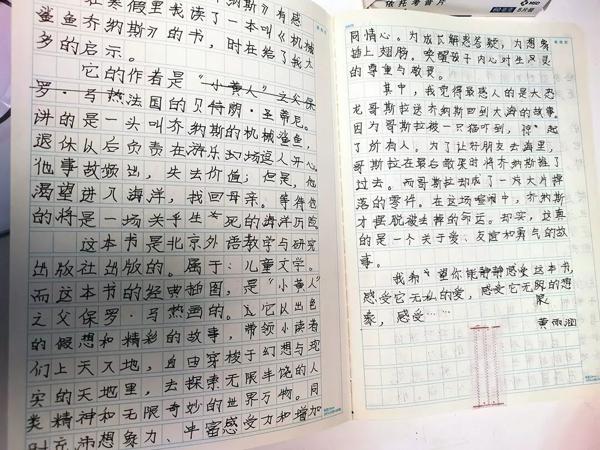 依托考昔片
在寒假里我读了一本叫《机械
鲨鱼乔纳斯》的书，时在给了我大
多的启示。
它的作者是“小黄人”之父保
罗·马热法国的贝特朗·圣蒂尼。
讲的是一头叫乔纳斯的机械鲨鱼，
退休以后负责在游乐场逗人开心。
他事故频出，失去价值；但是，他
渴望进入海洋，找回母亲。等待他
的将是一场关乎生死的海洋历险
这本书是北京外语教学与研究
出版社出版的。属于：儿童文学。
而这本书的经典插图，是“小黄人”
之父保罗·马热画的。它以出色
的假想和精彩的故事，带领小读者
们上天入地，自由穿梭于幻想与现
实的天地里，去探索无限丰饶的人
类精神和无限奇妙的世界万物。同
时充沛想象力、丰富感受力和增加
同情心。为成长解惑答疑，为想象
插上翅膀。唤醒孩子内心对生灵
的尊重与敬畏。
其中，我觉得最感人的是大恐
龙哥斯拉送乔纳斯回到大海的故事。
因为哥斯拉被一只猫吓到，惊起
了所有人。为了让好朋友去海里，
哥斯拉在最后散架时将乔纳斯推了
过去。而哥斯拉却成了一片大片掉
落的零件。在这场喧闹中，乔纳斯
才摆脱被去掉的命运。却实，这真
的是一个关于爱、友谊和勇气的故
事。
我希望你能静静感受这本书，
感受它无私的爱，感受它无股的想
象，感受……
黄雨涵